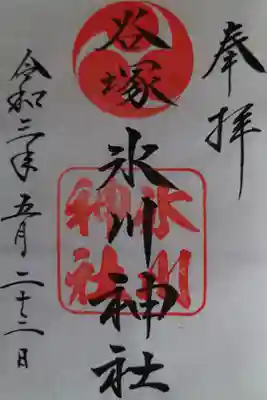 奉拝
谷塚
氷川神社
氷川
神社
令和三年五月二十二日